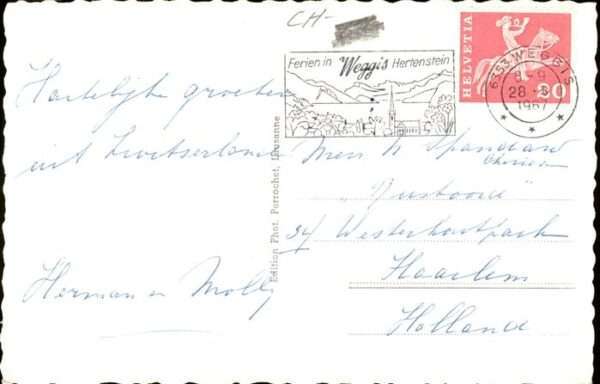 CH-
Ferien in Weggis Hertenstein
HELVETIA
6353 WEGGIS
8-9
28.-8
1967
30
Hartelijke groeten
uit Zwitserland
Herman en Molly
Edition Phot. Perrochet, Lausanne
Mevr. N Spandaw
"Rustoord"
34 Westerhoutpark
Haarlem
Holland